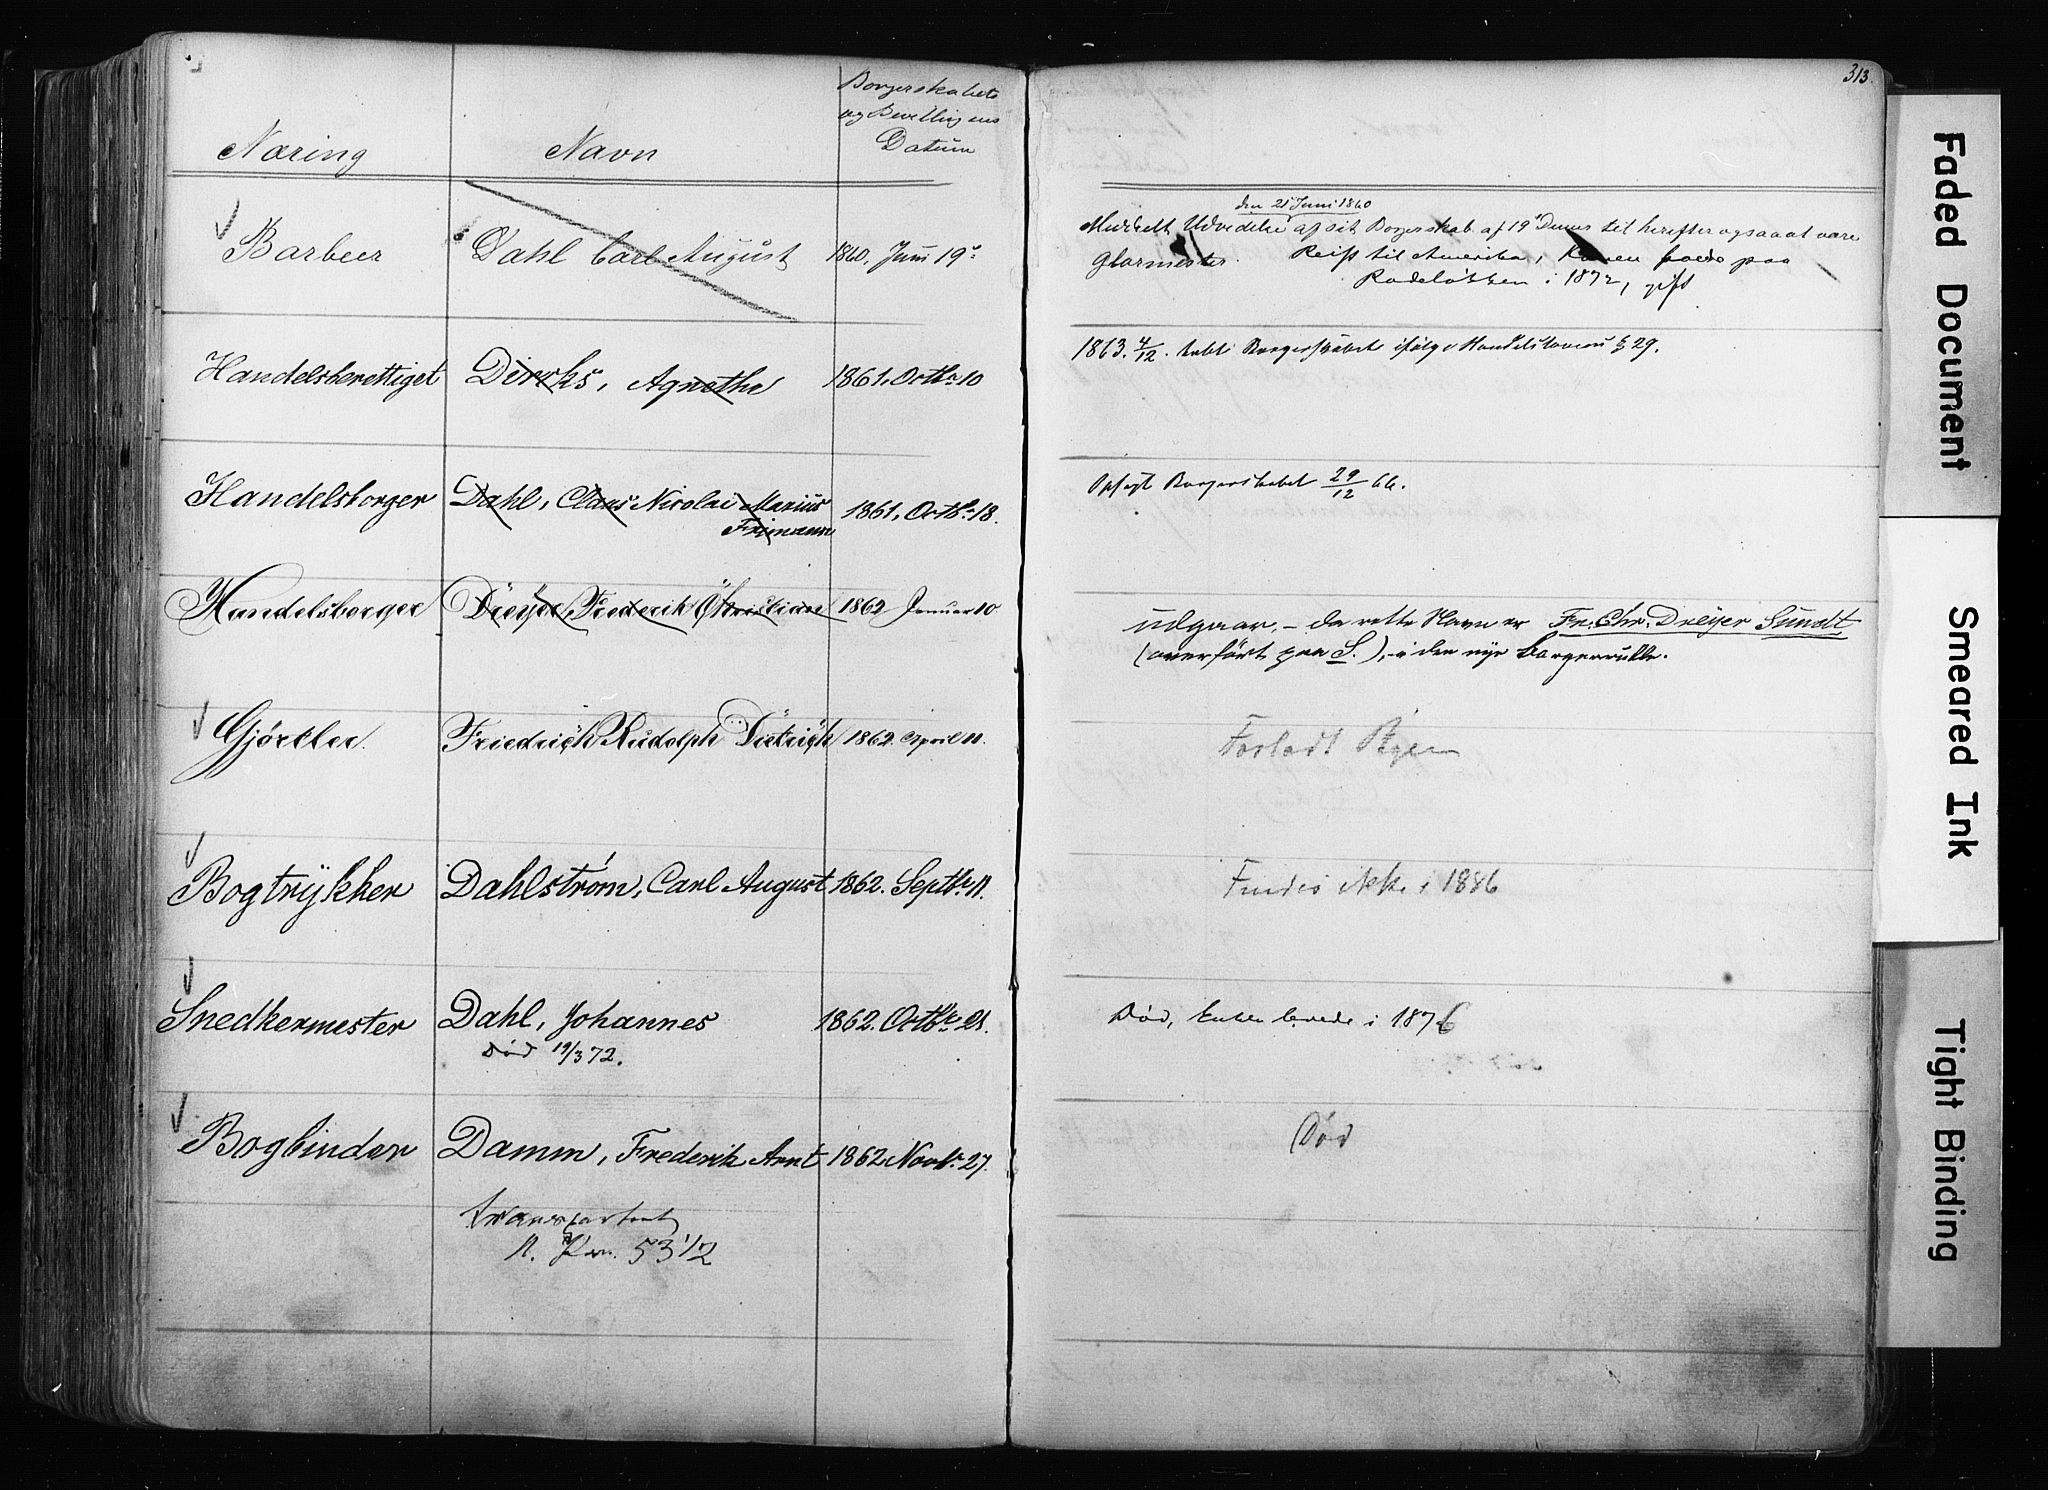 313.
Næring
Navn
Borgerskabets
og Bevillingens
Datum
Barbeer
Dahl Carl August
1860, Juni 19
den 21 Juni 1860
Meddelt Udvidelse af sit Borgerskab af 19 Dennes til herefter ogsaa at være
Glarmester. Reist til Amerika, Konen boede paa
Rodeløkken i 1872, gift
Handelsberettiget
Dircks, Agnethe
1861, Octbr 10
1863. 4/12. tabt Borgerskabet ifølge Handelsloven § 29.
Handelsborger
Dahl, Claus Nicolai Marius
Frimann
1861, Octbr 18.
Opsagt Borgerskabet 29/12 66.
Handelsborger
Dreyer, Frederik Christian
1862 Januar 10
udgaar, – da rette Navn er Fr. Chr. Dreyer Sundt
(overført paa S.), i den nye Borgerrulle.
Gjørtler
Friedrich Rudolph Dietrich
1862. April 11.
Forladt Byen
Bogtrykker
Dahlstrøm, Carl August
1862. Septbr 11.
Findes ikke i 1886
Snedkermester
Dahl, Johannes
1862. Octbr 21.
Død 19/3 72.
Død, Enken levede i 1876
Bogbinder
Damm, Frederik Arnt
1862 Novbr 27.
Død
transporteret
53 1/2
Faded Document
Smeared Ink
Tight Binding